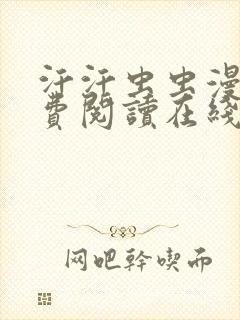 汗汗虫虫漫
費閱讀在綫
网吧幹喫而